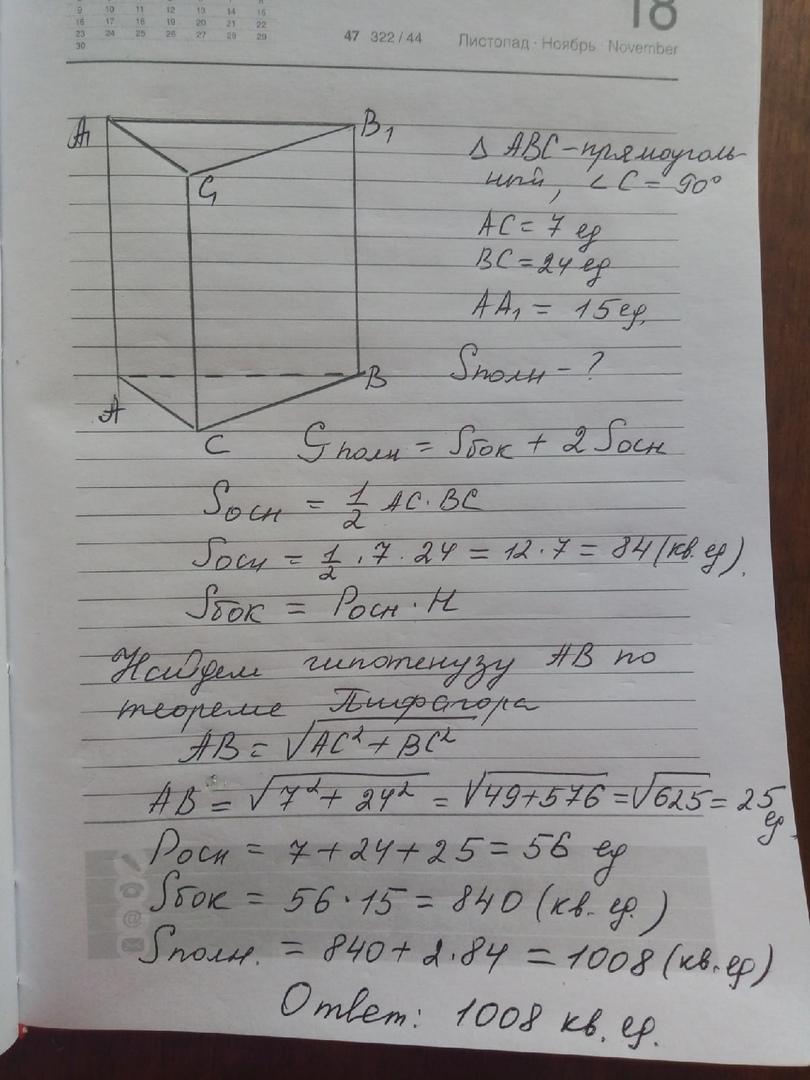 18
9 10 11 12 13 14 15
16 17 18 19 20 21 22
23 24 25 26 27 28 29
30
47 322 / 44
Листопад · Ноябрь · November
A₁
B₁
C₁
Δ ABC - прямоуголь-
ный, ∠C = 90°
AC = 7 ед
BC = 24 ед
AA₁ = 15 ед.
Sполн - ?
A
B
C
Sполн = Sбок + 2 Sосн
Sосн = 1/2 AC · BC
Sосн = 1/2 · 7 · 24 = 12 · 7 = 84 (кв. ед).
Sбок = Pосн · H
Найдем гипотенузу AB по
теореме Пифагора
AB = √AC² + BC²
AB = √7² + 24² = √49+576 = √625 = 25 ед.
Pосн = 7 + 24 + 25 = 56 ед
Sбок = 56 · 15 = 840 (кв. ед.)
Sполн. = 840 + 2 · 84 = 1008 (кв. ед)
Ответ: 1008 кв. ед.